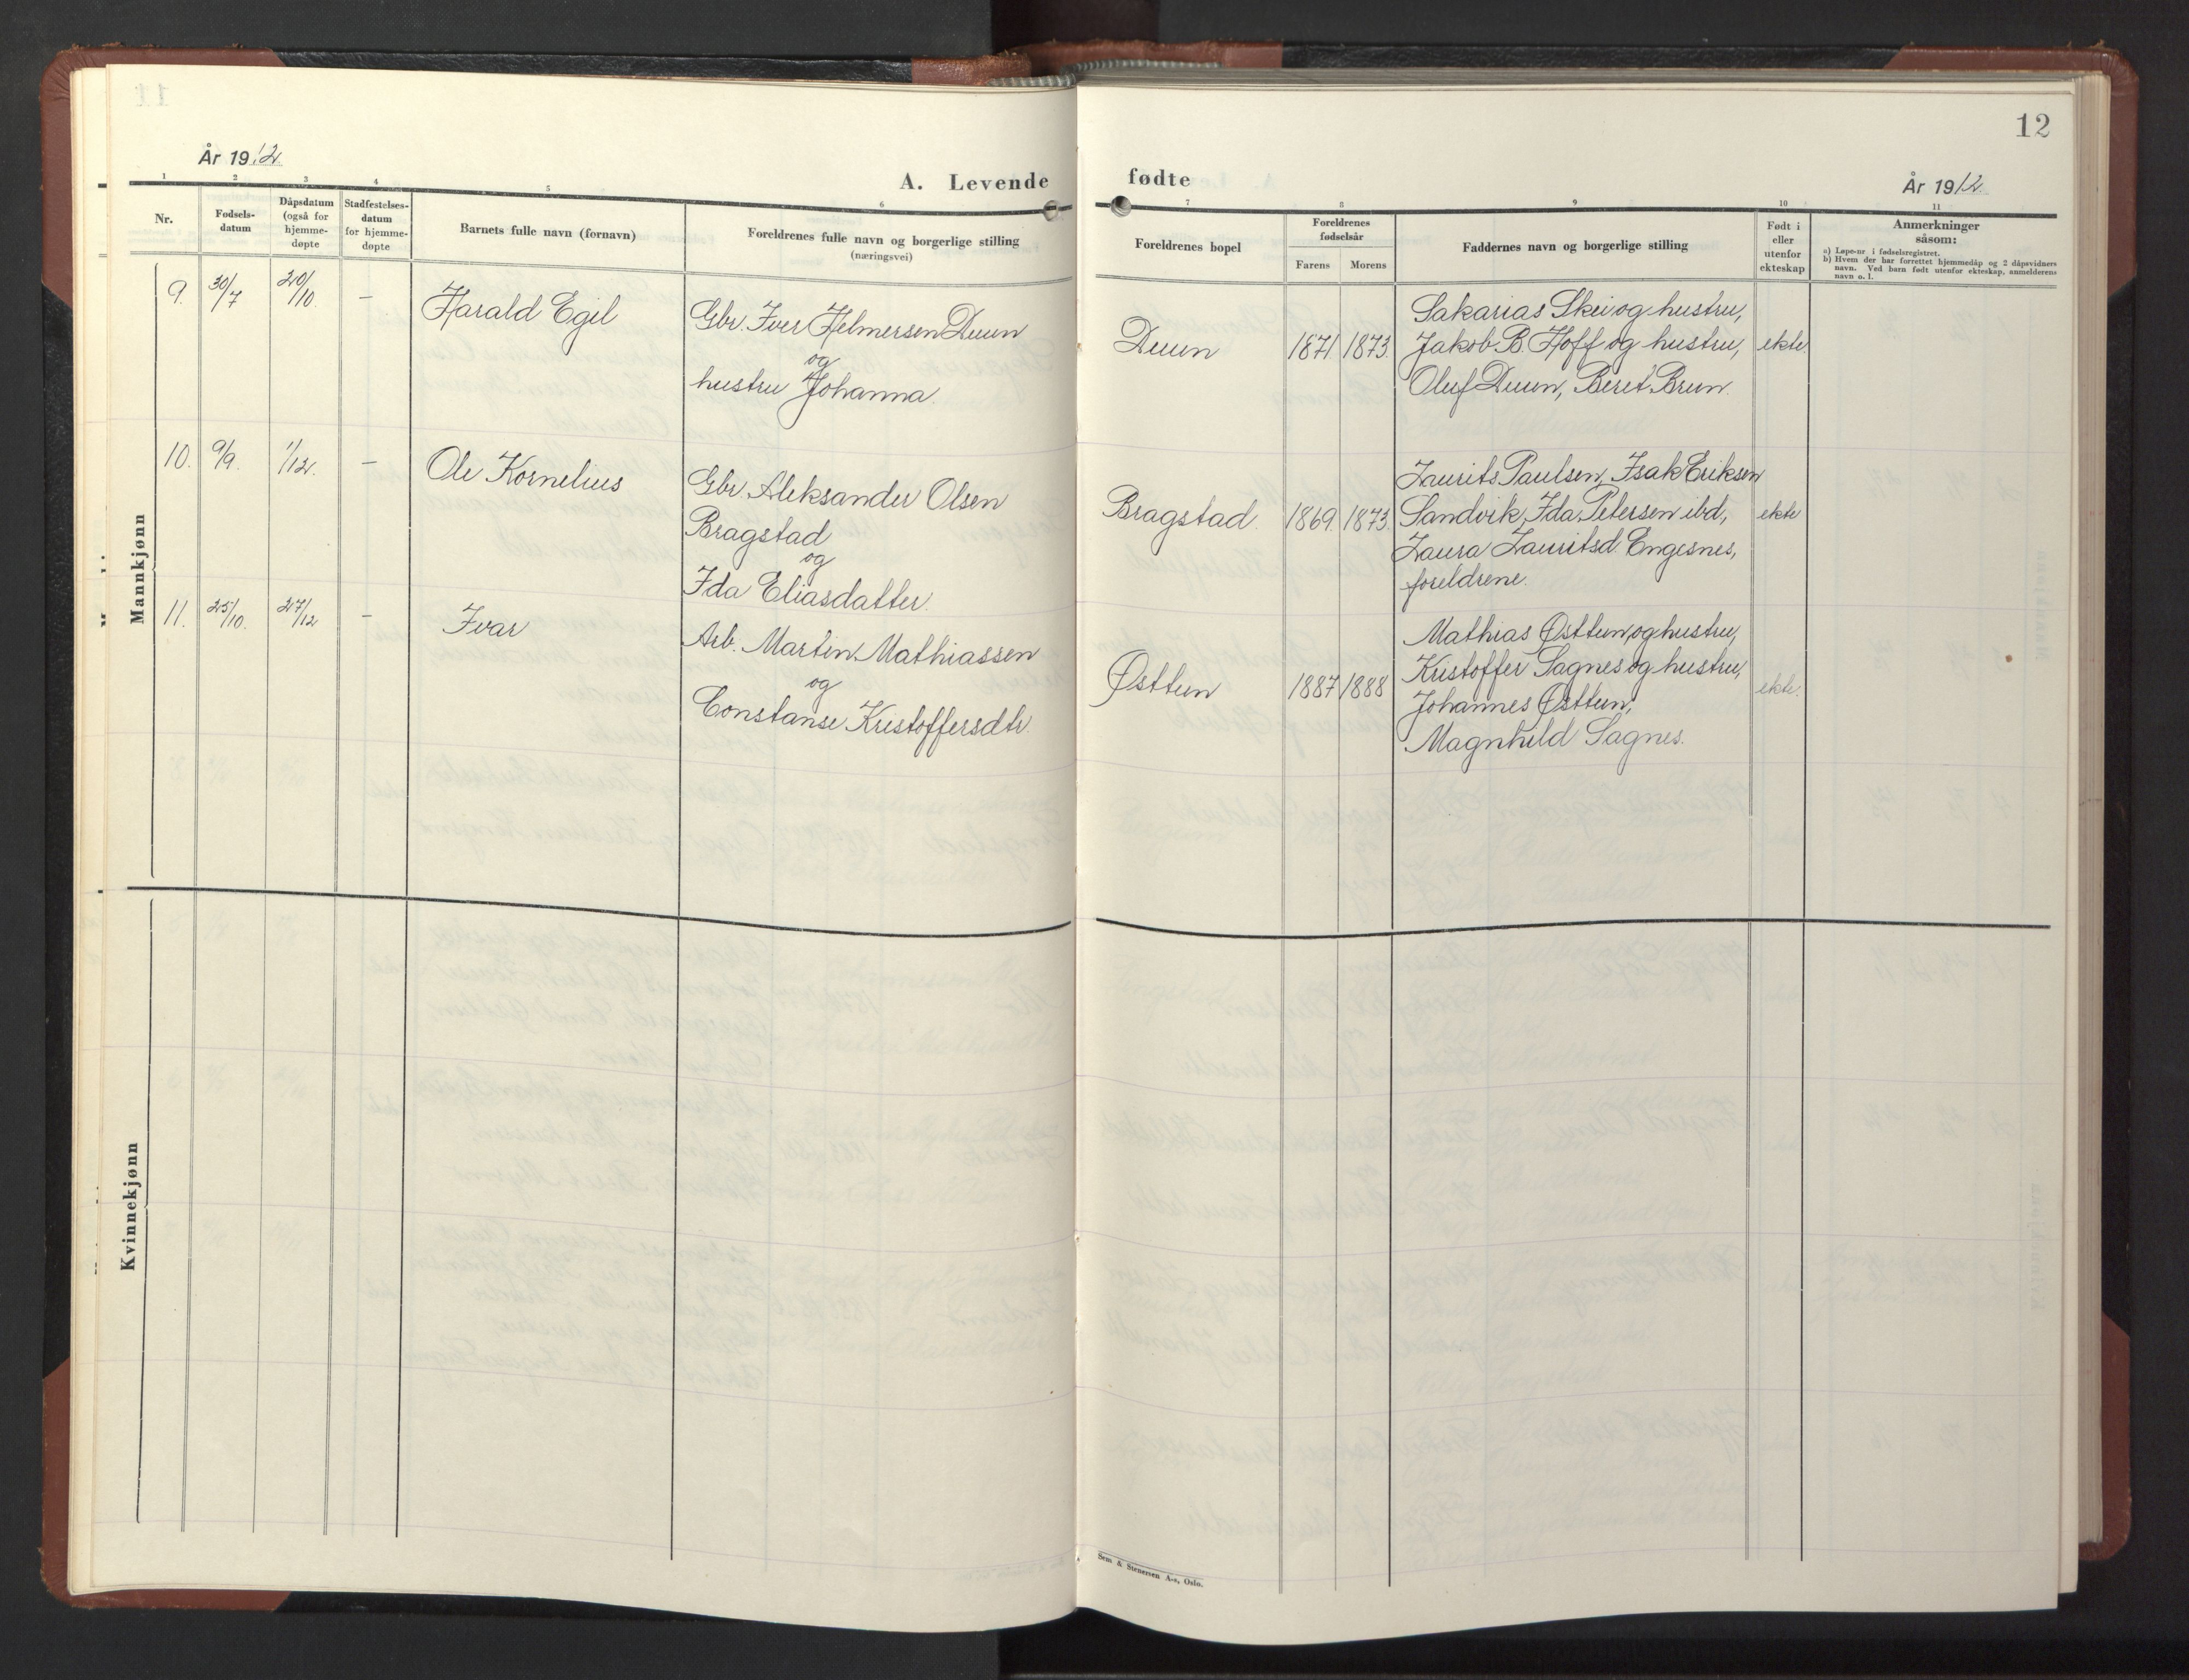 12
År 1912.
A. Levende
fødte
År 1912.
1
2
3
4
5
6
7
8
9
10
11
Nr.
Fødsels-
datum
Dåpsdatum
(også for
hjemme-
døpte
Stadfestelses-
datum
for hjemme-
døpte
Barnets fulle navn (fornavn)
Foreldrenes fulle navn og borgerlige stilling
(næringsvei)
Foreldrenes bopel
Foreldrenes
fødselsår
Farens
Morens
Faddernes navn og borgerlige stilling
Født i
eller
utenfor
ekteskap
Anmerkninger
såsom:
a) Løpe-nr i fødselsregistret.
b) Hvem der har forrettet hjemmedåp og 2 dåpsvidners
navn. Ved barn født utenfor ekteskap, anmelderens
navn o. l.
Mankjønn
9. 30/7 20/10. – Harald Egil
Gbr. Iver Helmersen Duun
og
hustru Johanna.
Duun 1871 1873.
Sakarias Skei og hustru,
Jakob B. Hoff og hustru,
Oluf Duun, Beret Brun.
ekte.
10. 9/9. 1/12. – Ole Kornelius
Gbr. Aleksander Olsen
Bragstad
og
Ida Eliasdatter.
Bragstad. 1869. 1873.
Laurits Paulsen, Isak Eriksen
Sandvik, Ida Petersen ibd,
Laura Lauritsd. Engesnes,
foreldrene.
ekte
11. 25/10. 27/12 – Ivar
Arb. Martin Mathiassen
og
Constanse Kristoffersdtr.
Østtun 1887 1888
Mathias Østtun og hustru,
Kristoffer Sagnes og hustru,
Johannes Østtun,
Magnhild Sagnes.
ekte.
Kvinnekjønn
Sem & Stenersen A-s, Oslo.